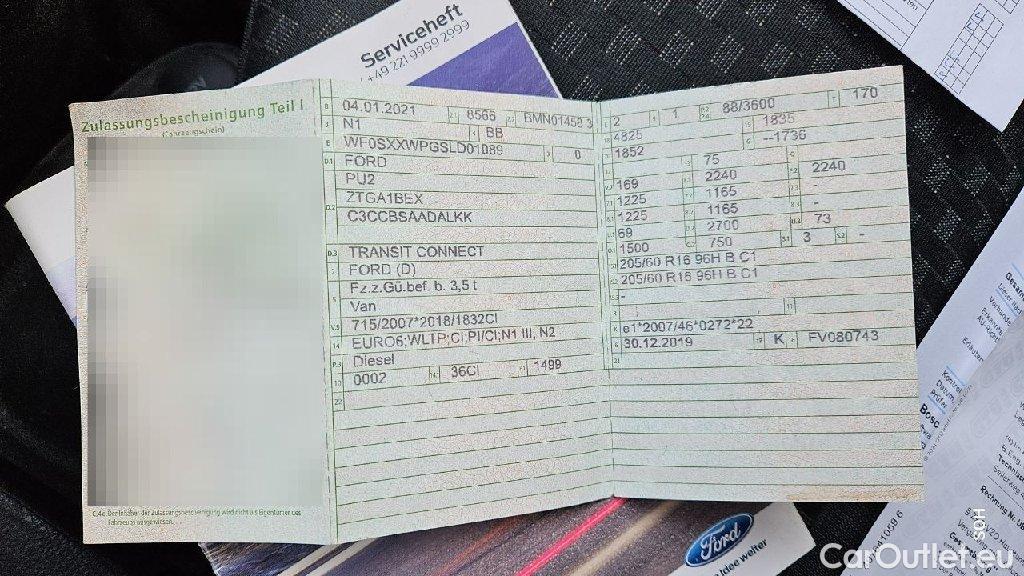 Serviceheft
+49 221 9999 2999
Zulassungsbescheinigung Teil I
(Fahrzeugschein)
04.01.2021 8566
N1 BB
WF0SXXWPGSLD01089 0
FORD
PU2
ZTGA1BEX
C3CCBSAADALKK
TRANSIT CONNECT
FORD (D)
Fz.z.Gü.bef. b. 3,5 t
Van
715/2007*2018/1832CI
EURO6;WLTP;CI;PI/CI;N1 III, N2
Diesel
0002 36CI 1499
2 1 88/3600 170
4825 1835
1852 --1736
75
169 2240 2240
1225 1165 -
1225 1165 -
69 2700 73
1500 750 3 -
205/60 R16 96H B C1
205/60 R16 96H B C1
-
e1*2007/46*0272*22
30.12.2019 K FV080743
C.4c Der Inhaber der Zulassungsbescheinigung wird nicht als Eigentümer des
Fahrzeugs ausgewiesen.
Ford
Idee weiter
HOS
CarOutlet.eu